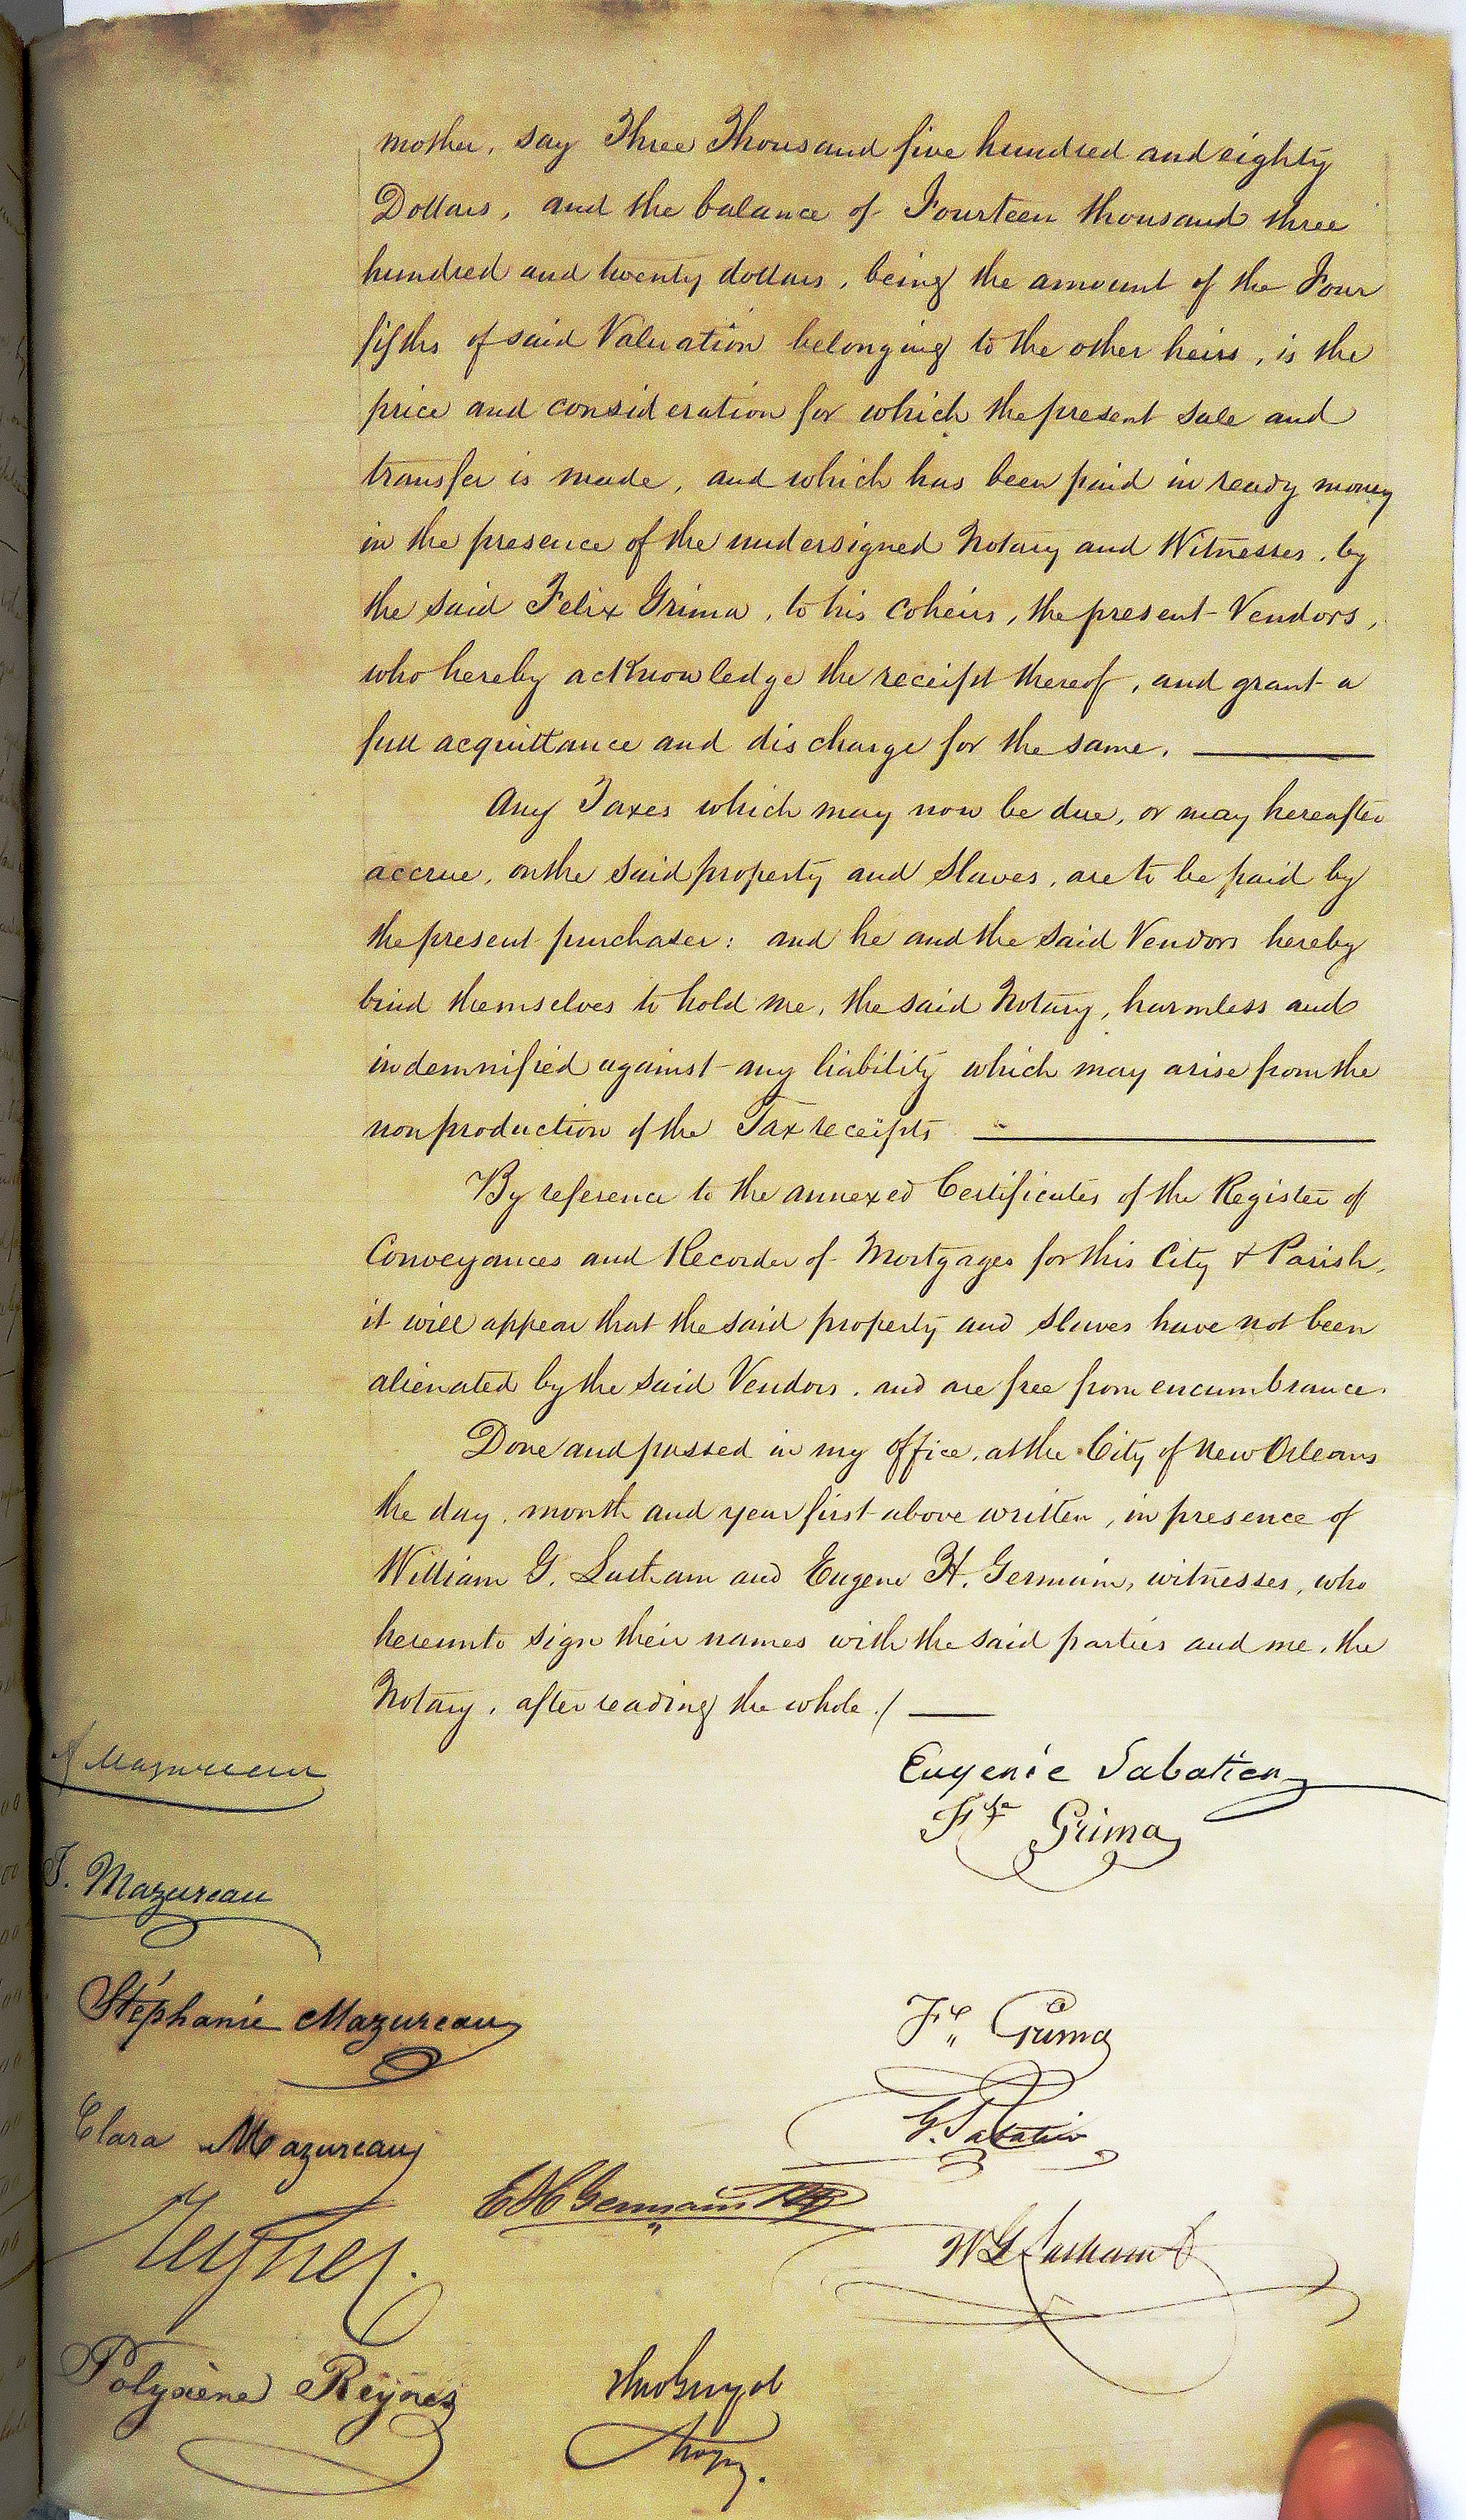 mother, say Three Thousand five hundred and eighty
Dollars, and the balance of Fourteen thousand three
hundred and twenty dollars, being the amount of the Four
fifths of said Valuation belonging to the other heirs, is the
price and consideration for which the present sale and
transfer is made, and which has been paid in ready money
in the presence of the undersigned Notary and Witnesses, by
the said Felix Grima, to his coheirs, the present Vendors,
who hereby acknowledge the receipt thereof, and grant a
full acquittance and discharge for the same.
Any Taxes which may now be due, or may hereafter
accrue, on the said property and Slaves, are to be paid by
the present purchaser: and he and the said Vendors hereby
bind themselves to hold me, the said Notary, harmless and
indemnified against any liability which may arise from the
nonproduction of the Tax receipts
By reference to the annexed Certificates of the Register of
Conveyances and Recorder of Mortgages for this City & Parish,
it will appear that the said property and slaves have not been
alienated by the said Vendors, and are free from encumbrance.
Done and passed in my office, at the City of New Orleans
the day, month and year first above written, in presence of
William G. Latham and Eugene H. Germain, witnesses, who
hereunto sign their names with the said parties and me, the
Notary, after reading the whole./
Mazureau
Eugenie Sabatier
Grima
J. Mazureau
Stéphanie Mazureau
Fx Grima
Clara Mazureau
G. Sabatier
E H Germain
W G Latham
Polyxène Reynes